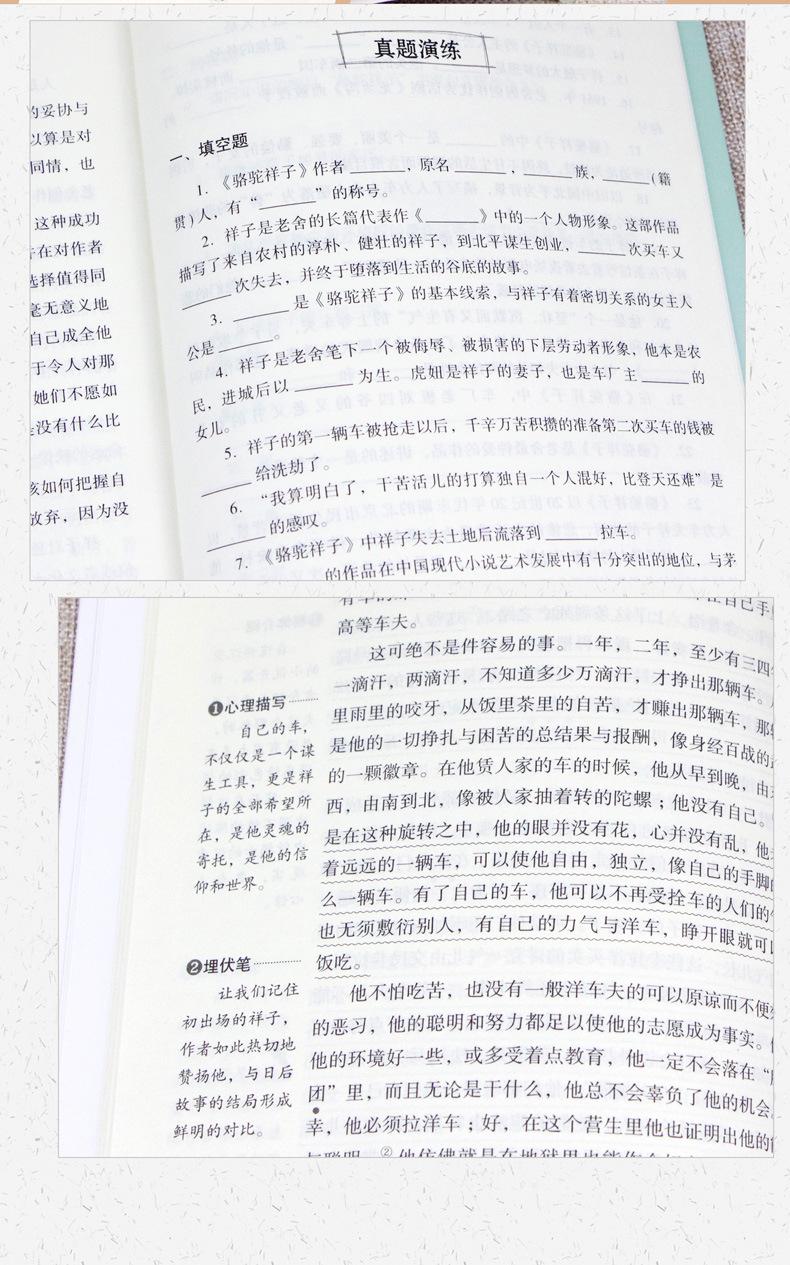 真题演练
的妥协与
以算是对
同情，也
这种成功
在对作者
选择值得同
毫无意义地
自己成全他
于令人对那
她们不愿如
没有什么比
该如何把握自
放弃，因为没
一、填空题
1. 《骆驼祥子》作者______，原名______，______族，______(籍
贯)人，有“______”的称号。
2. 祥子是老舍的长篇代表作《______》中的一个人物形象。这部作品
描写了来自农村的淳朴、健壮的祥子，到北平谋生创业，______次买车又
______次失去，并终于堕落到生活的谷底的故事。
3. ______是《骆驼祥子》的基本线索，与祥子有着密切关系的女主人
公是______。
4. 祥子是老舍笔下一个被侮辱、被损害的下层劳动者形象，他本是农
民，进城后以______为生。虎妞是祥子的妻子，也是车厂主______的
女儿。
5. 祥子的第一辆车被抢走以后，千辛万苦积攒的准备第二次买车的钱被
______给洗劫了。
6. “我算明白了，干苦活儿的打算独自一个人混好，比登天还难”是
______的感叹。
7. 《骆驼祥子》中祥子失去土地后流落到______拉车。
的作品在中国现代小说艺术发展中有十分突出的地位，与茅
高等车夫。
这可绝不是件容易的事。一年，二年，至少有三四年
一滴汗，两滴汗，不知道多少万滴汗，才挣出那辆车。
里雨里的咬牙，从饭里茶里的自苦，才赚出那辆车。那
是他的一切挣扎与困苦的总结果与报酬，像身经百战的
的一颗徽章。在他赁人家的车的时候，他从早到晚，由
西，由南到北，像被人家抽着转的陀螺；他没有自己。
是在这种旋转之中，他的眼并没有花，心并没有乱，他
着远远的一辆车，可以使他自由，独立，像自己的手脚
么一辆车。有了自己的车，他可以不再受拴车的人们的
也无须敷衍别人，有自己的力气与洋车，睁开眼就可以
饭吃。
他不怕吃苦，也没有一般洋车夫的可以原谅而不便
的恶习，他的聪明和努力都足以使他的志愿成为事实。
他的环境好一些，或多受着点教育，他一定不会落在“
团”里，而且无论是干什么，他总不会辜负了他的机会。
幸，他必须拉洋车；好，在这个营生里他也证明出他的
②他仿佛就是在地狱里也能作
❶心理描写
自己的车，
不仅仅是一个谋
生工具，更是祥
子的全部希望所
在，是他灵魂的
寄托，是他的信
仰和世界。
❷埋伏笔
让我们记住
初出场的祥子，
作者如此热切地
赞扬他，与日后
故事的结局形成
鲜明的对比。